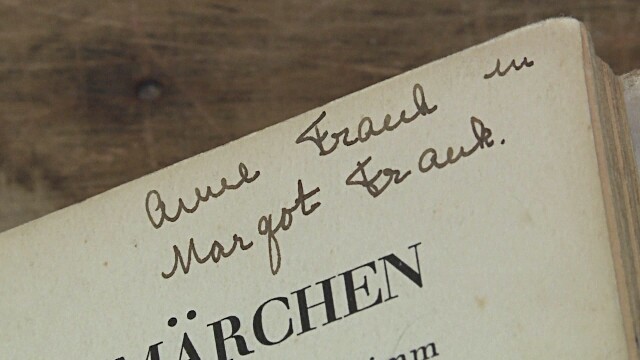 Anne Frank in
Margot Frank.
MÄRCHEN